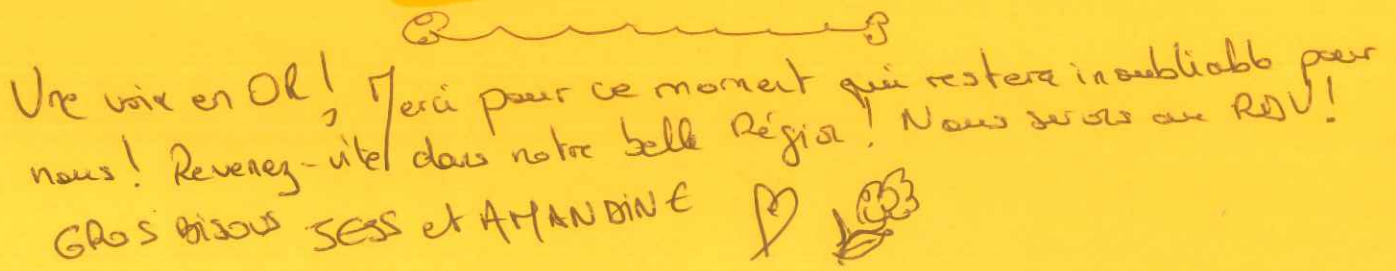 Une voix en OR! Merci pour ce moment qui restera inoubliable pour
nous! Revenez-vite! dans notre belle Région! Nous serons au RDV!
GROS BISOUS JESS et AMANDINE